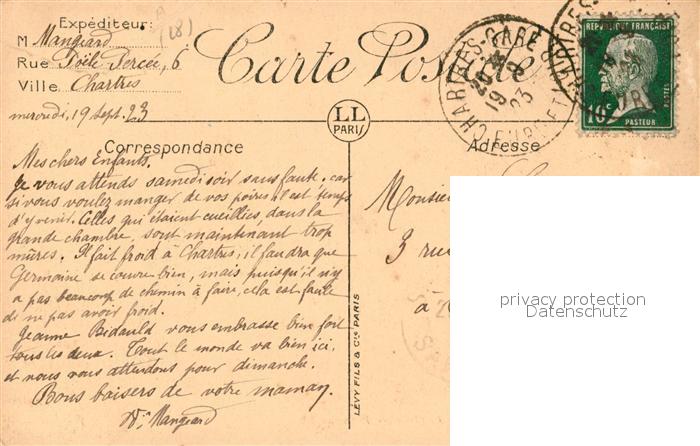 Expéditeur:
M Mangeard
(28)
Rue Poële Percée, 6
Ville Chartres
mercredi, 19 Sept. 23
Carte Postale
CHARTRES-GARE
19
23
EURE ET
RÉPUBLIQUE FRANÇAISE
POSTES
10c
PASTEUR
LL
PARIS
Correspondance
Adresse
Mes chers Enfants.
Je vous attends samedi soir sans faute. car
si vous voulez manger de vos poires il est temps
d'y venir. Celles qui étaient cueillies, dans la
grande chambre, sont maintenant trop
mûres. Il fait froid à Chartres, il faudra que
Germaine se couvre bien, mais puisqu'il n'y
a pas beaucoup de chemin à faire, cela est facile
de ne pas avoir froid.
Jeanne Bidauld vous embrasse bien fort
tous les deux. Tout le monde va bien ici,
et nous vous attendons pour dimanche.
Bons baisers de votre maman.
Mangeard
LÉVY FILS & Cie PARIS
Monsieu
3 rue
à
privacy protection
Datenschutz